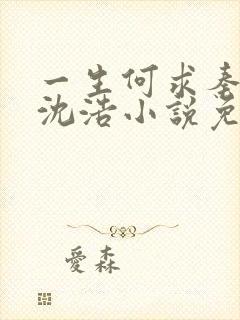 一生何求秦
沈浩小說免
愛森